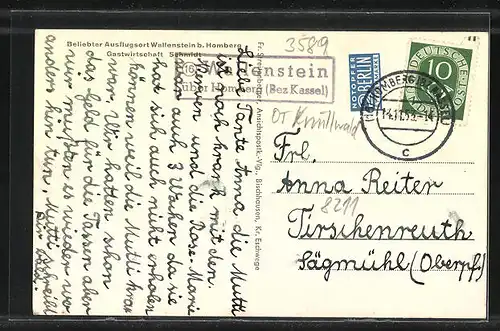 Beliebter Ausflugsort Wallenstein b. Homberg
Gastwirtschaft Schmidt
3589
(16) Wallenstein
über Homberg (Bez Kassel)
OT Knüllwald
NOTOPFER
2 BERLIN
STEUERMARKE
DEUTSCHE BUNDESPOST
10
HOMBERG (BZ. KASSEL)
c
Liebe Tante Anna die Mutti
ist noch krank mit den
Nerven und die Rose-Marie
war auch 3 Wochen da sie
hat sich auch nicht erholen
können weil die Mutti krank
war. Wir hatten schon
das Geld für die Tassen aber
wir mußten es wieder wo
anders hin tun. Mutti schreibt
Fr. Streckeberger, Ansichtspostk.-Vlg., Bischhausen, Kr. Eschwege
Frl.
Anna Reiter
8211
Tirschenreuth
Sägmühl (Oberpf.)